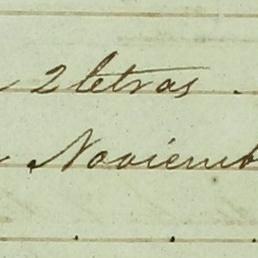 2 letras .
Noviemb